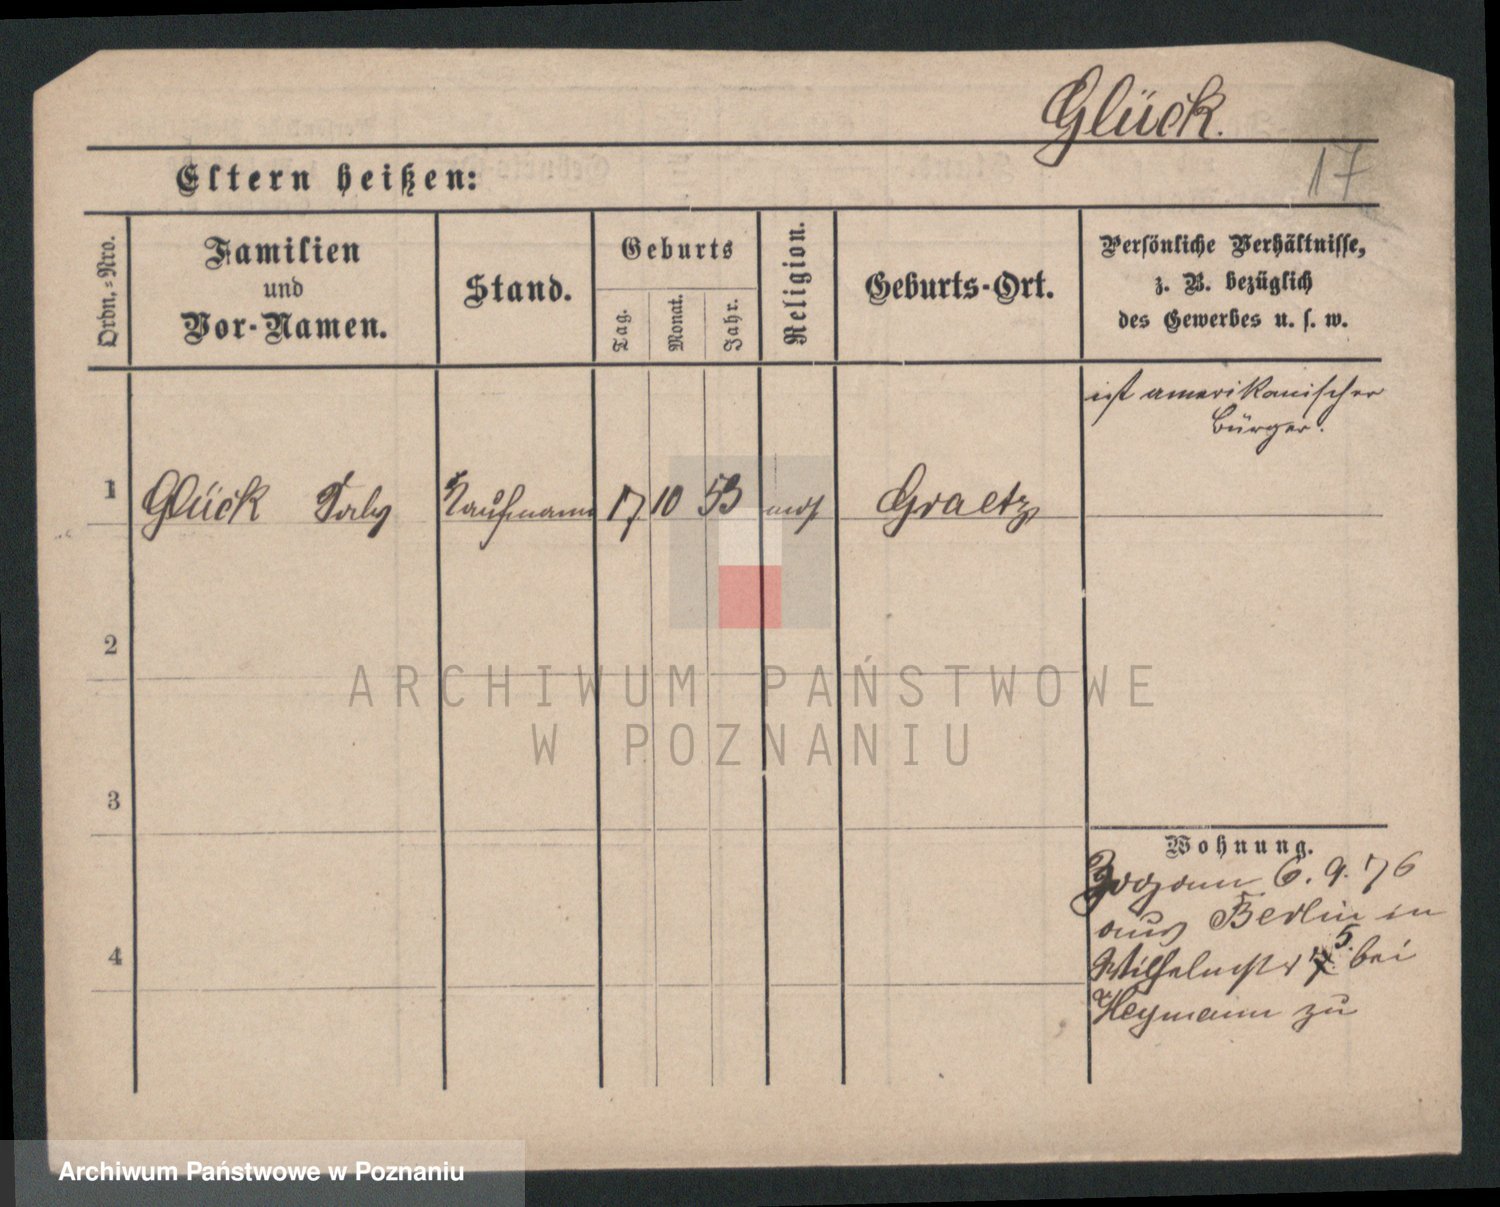 Glück.
17
Eltern heißen:
Ordn.-Nro.
Familien
und
Vor-Namen.
Stand.
Geburts
Tag.
Monat.
Jahr.
Religion.
Geburts-Ort.
Persönliche Verhältnisse,
z. B. bezüglich
des Gewerbes u. s. w.
ist amerikanischer
Bürger.
1 Glück Kaufmann 17 10 53 mos Graetz
2
3
4
Wohnung.
Zugezogen 6. 9. 76
aus Berlin in
Wilhelmstr 5. bei
Heymann zu
ARCHIWUM PAŃSTWOWE
W POZNANIU
Archiwum Państwowe w Poznaniu